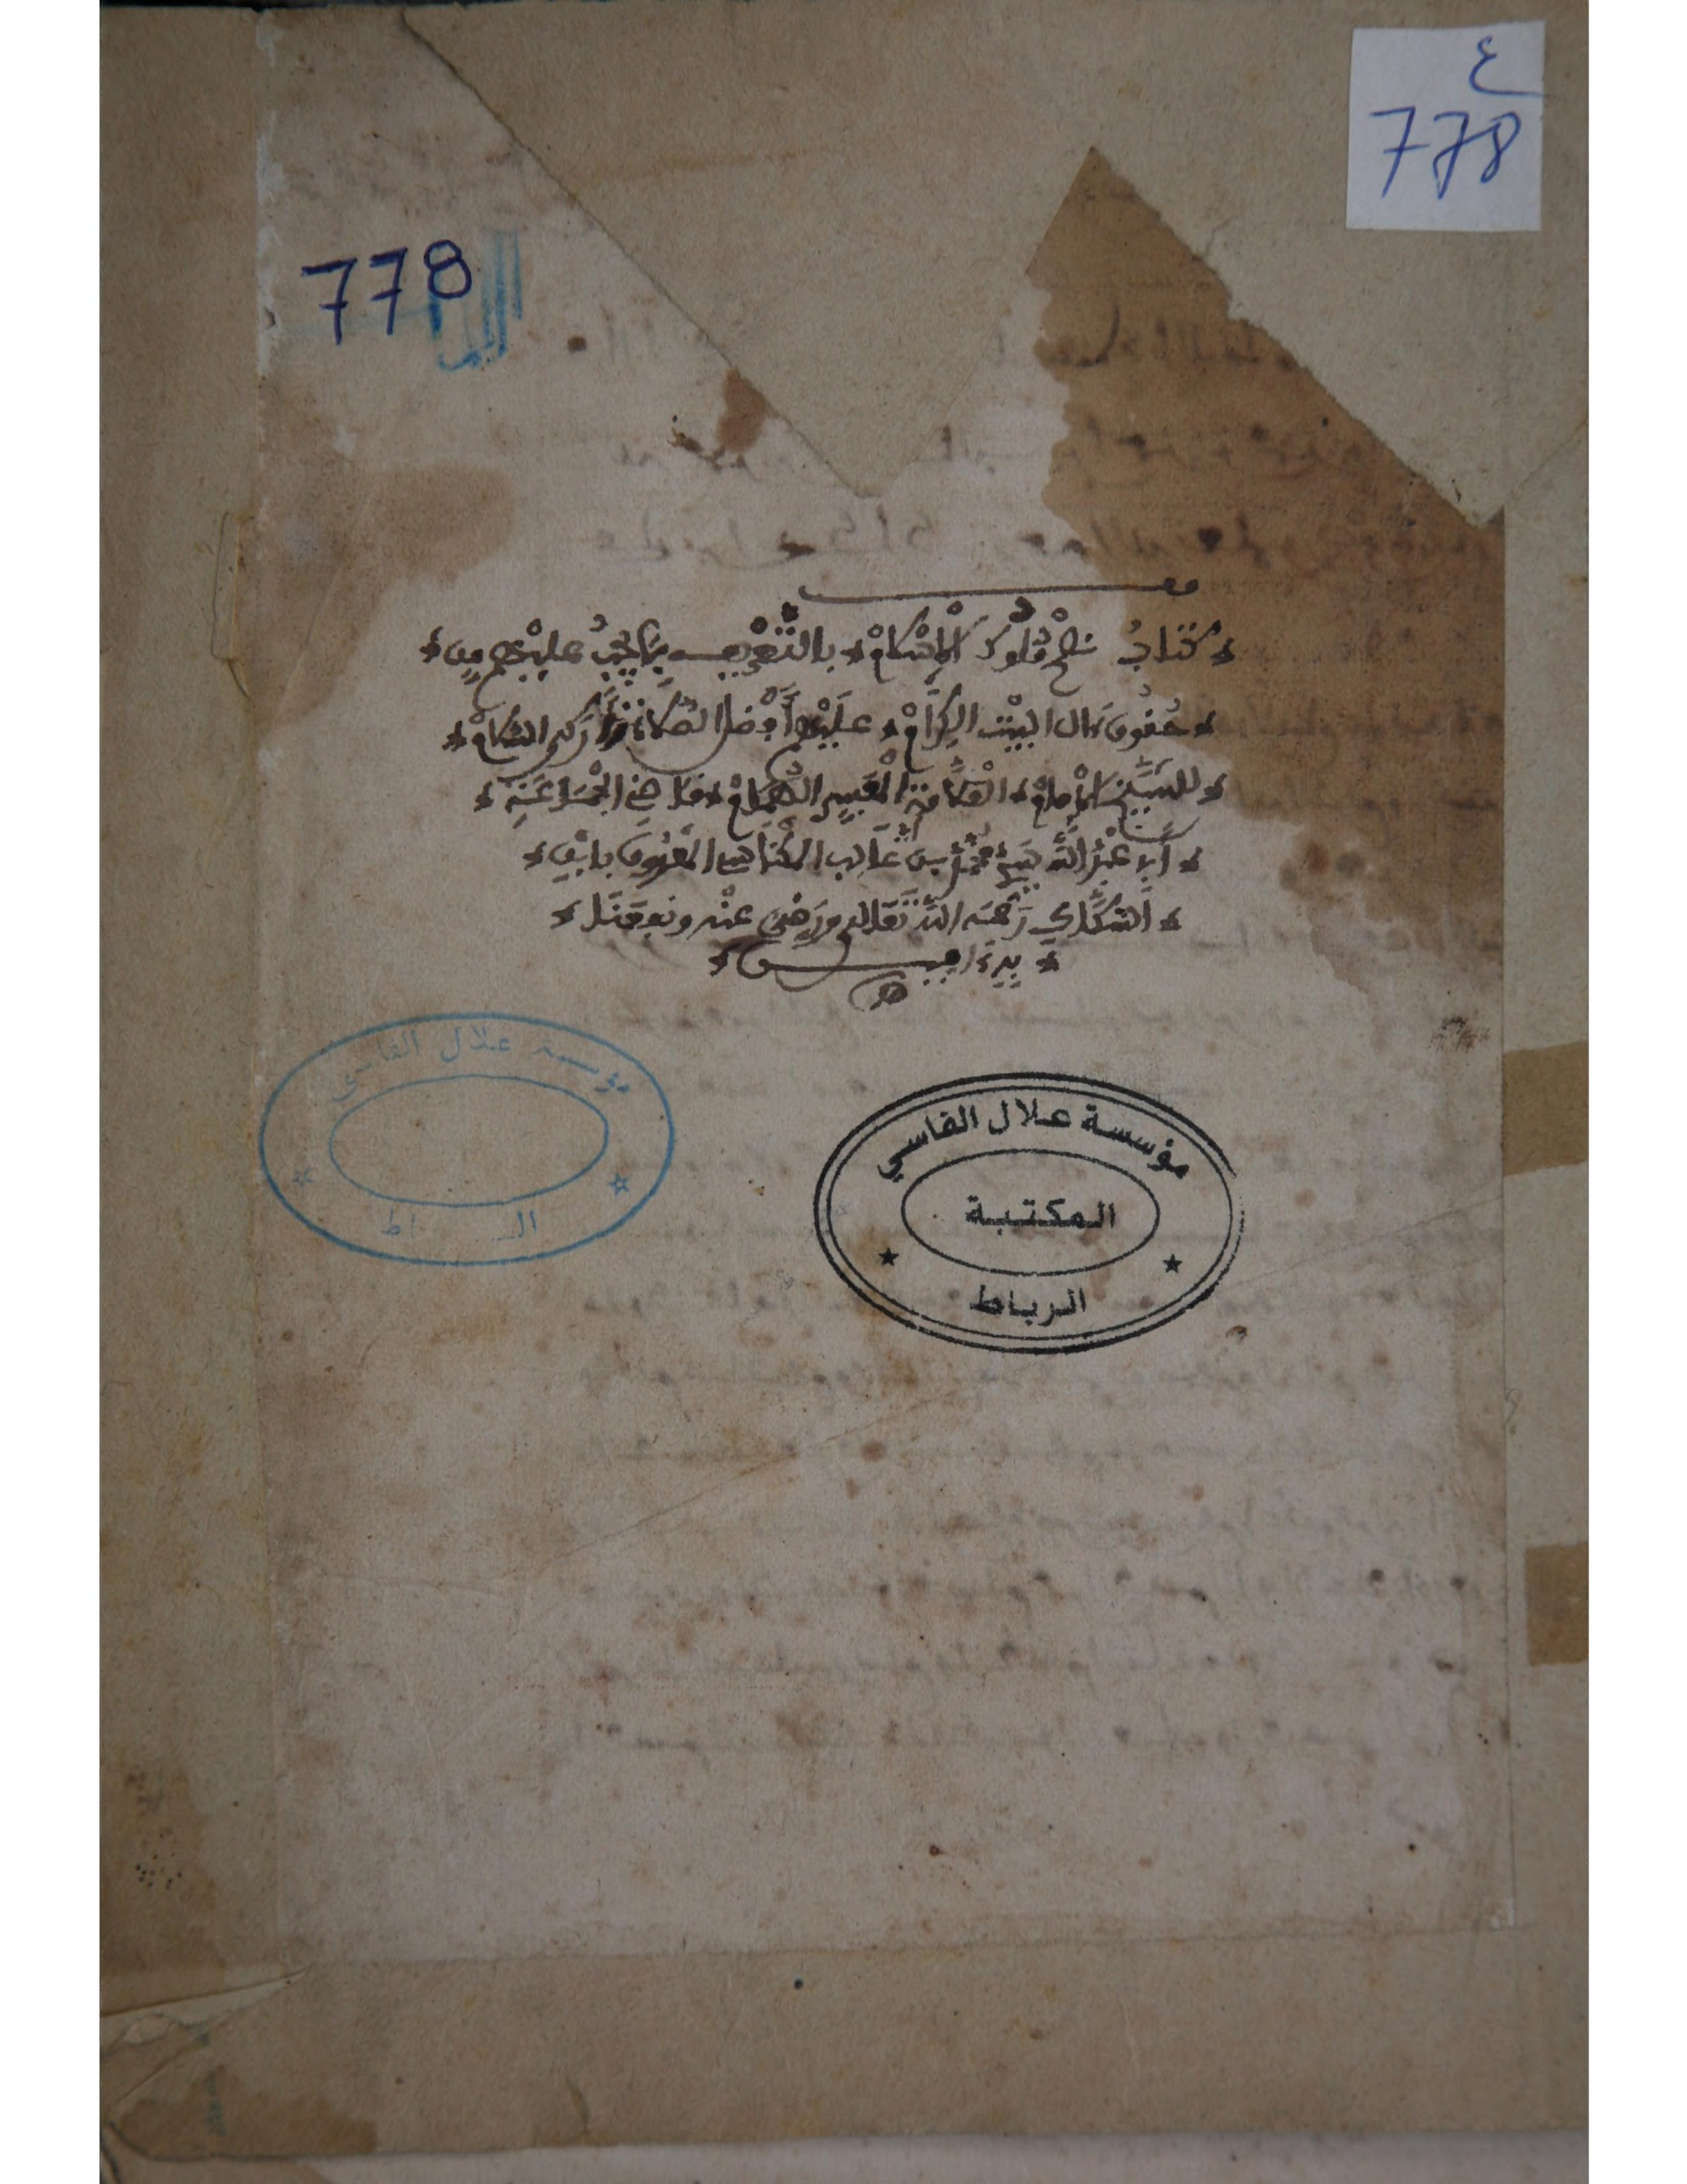 ع
778
778
كتاب نصح ملوك الإسلام * بالتعريف بما يجب عليهم من *
* حقوق ءال البيت الكرام * عليهم أفضل الصلاة وأزكى السلام *
* للشيخ الإمام * العلامة المفسر الهمام * قاضي الجماعة *
* أبي عبد الله سيدي محمد بن غالب المكناسي المعروف بابن *
* السكاك رحمه الله تعالى ورضي عنه ونفعنا *
* به ءامين *
مؤسسة علال الفاسي
مؤسسة علال الفاسي
المكتبة
الرباط